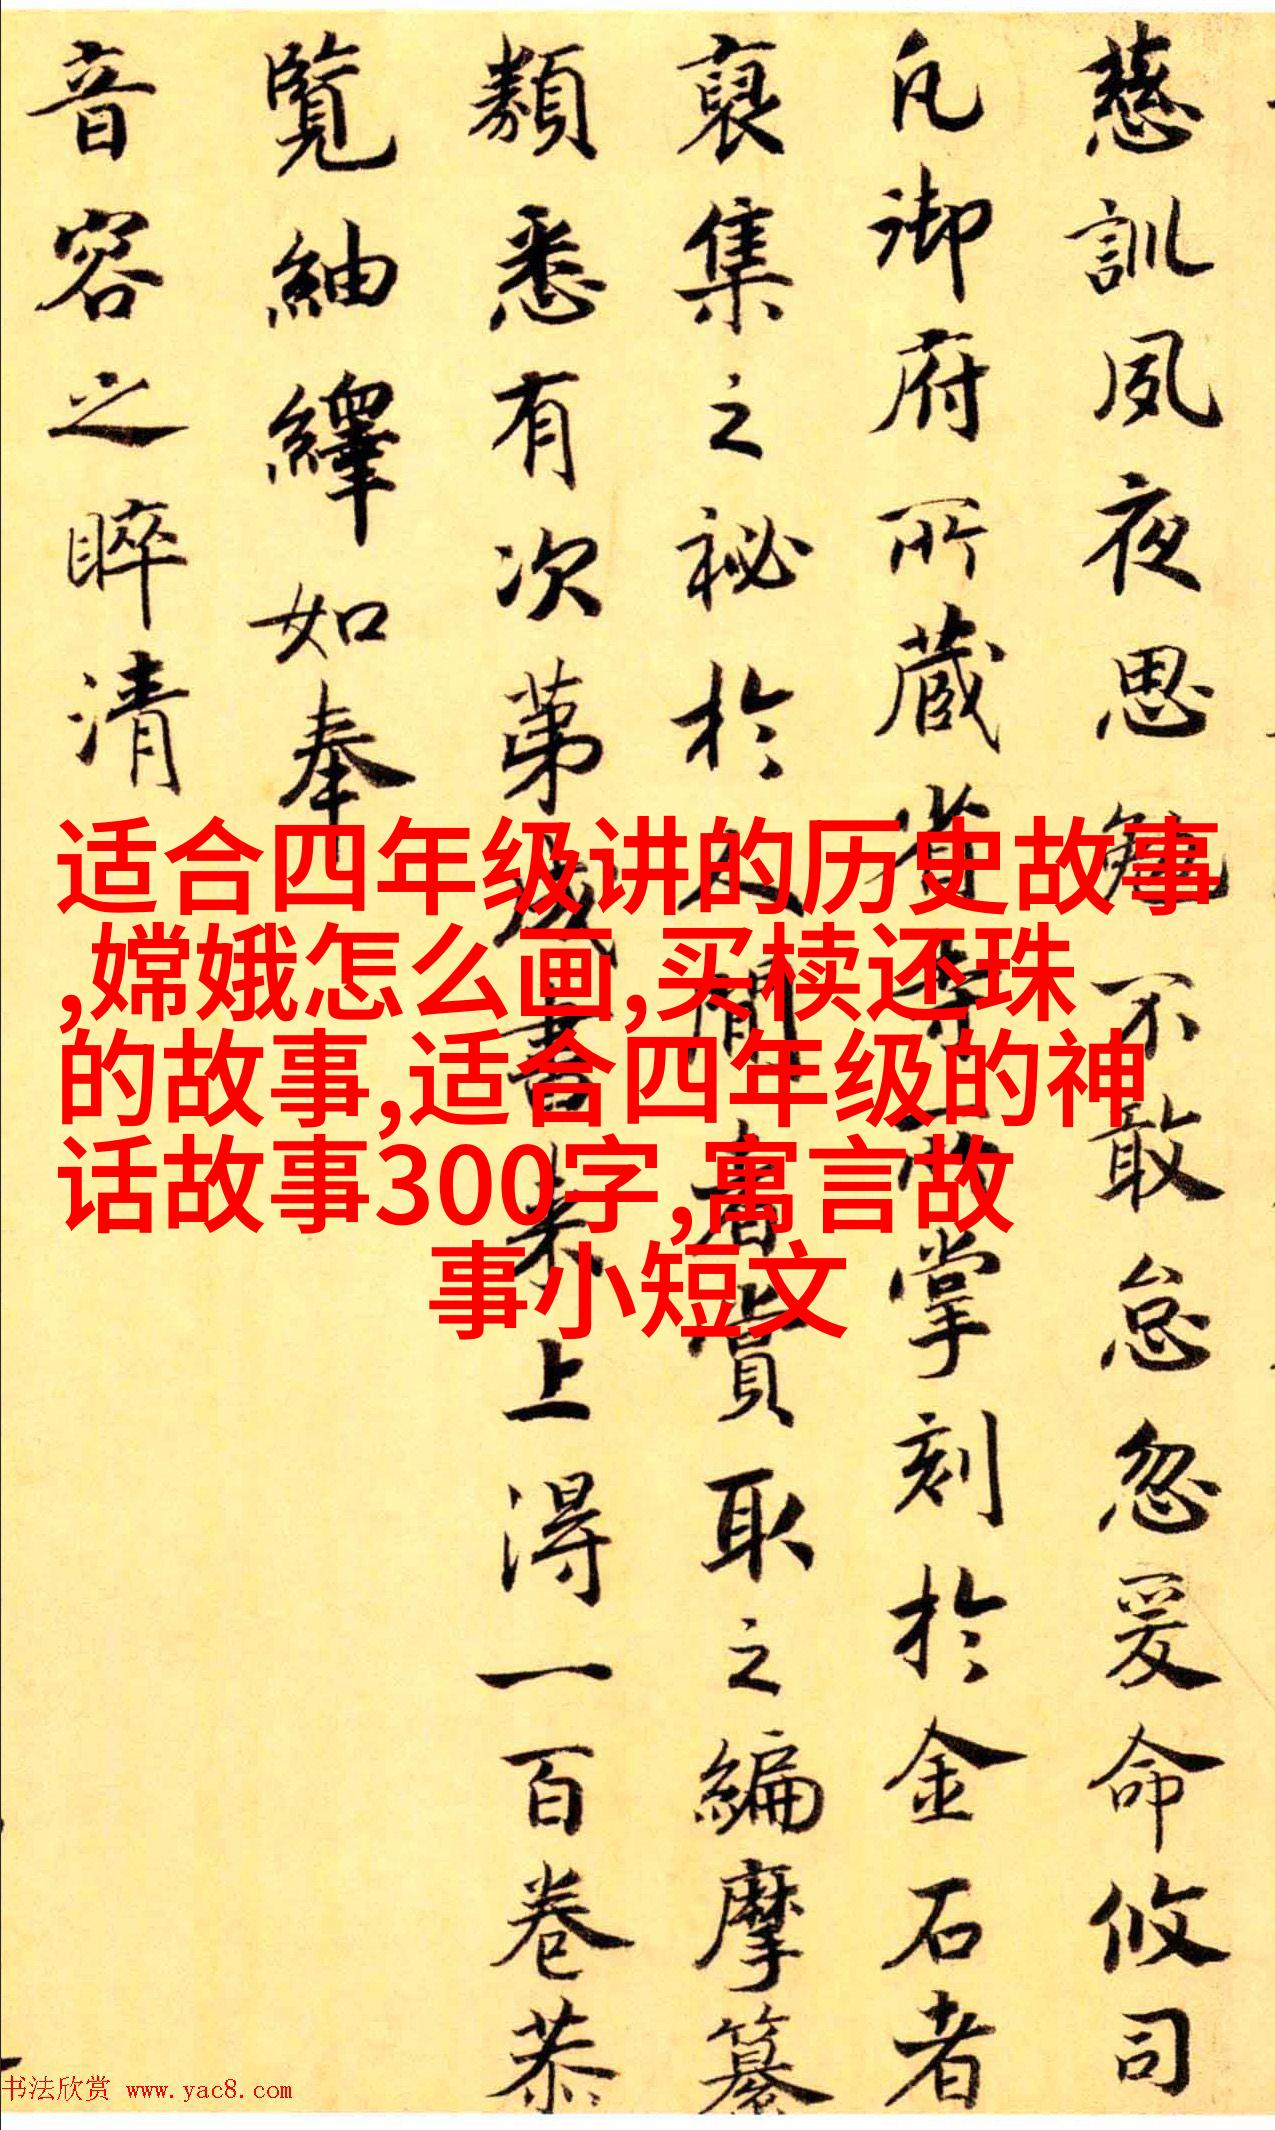 慈訓夙夜思 不敢怠忽爰命攸司
凡御府所藏 掌刻於金石者
裒集之祕於人間 賞取之編摩纂
類悉有次第 書来上得一百卷恭
覧紬繹如奉
音容之睟清
适合四年级讲的历史故事
,嫦娥怎么画,买椟还珠
的故事,适合四年级的神
话故事300字,寓言故
事小短文
书法欣赏 www.yac8.com